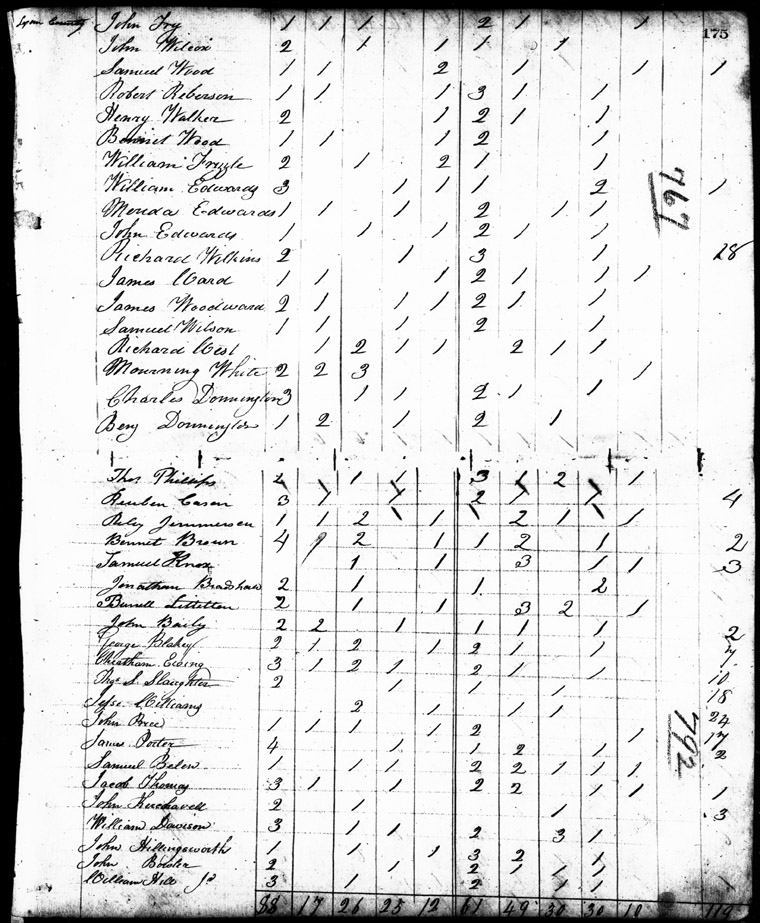 Lyon County John Fry 1 1 1 2 1 1 175
John Wilcox 2 1 1 1 1
Samuel Wood 1 1 2 1 1 1
Robert Roberson 1 1 1 3 1 1
Henry Walker 2 1 2 1 1
Bennet Wood 1 1 1 2 1
William 2 1 2 1 1
William Edwards 3 1 1 1 2 1
Edwards 1 1 1 2 1 1
John Edwards 1 1 1 2 1 1
Richard Wilkins 2 1 3 1 28
James Ward 1 1 1 2 1 1 1
James Woodward 2 1 1 1 2 1 1
Samuel Wilson 1 1 1 2 1
Richard West 1 2 1 1 2 1 1
Mourning White 2 2 3 1
Charles Donnington 3 1 1 2 1 1
Benj Donnington 1 2 1 2 1
767
Thos Phillips 1 1 3 1 2 1
Reuben Cason 3 1 1 2 1 1 4
Riley Jimmerson 1 1 2 1 1 2 1 1
Bennet Brown 4 2 1 1 2 1 2
Samuel Knox 1 1 3 1 1 3
Jonathan Bradshaw 2 1 1 2
Burrell Littleton 2 1 1 3 2 1
John Baily 2 2 1 1 1 1 2
George Blakey 2 1 2 1 2 1 1 7
Cheatham Ewing 3 1 2 1 2 1 1
Thos S. Slaughter 2 1 1 1 10
Jesse Williams 2 1 1 1 18
John Price 1 1 1 1 2 1 24
James Porter 4 1 1 2 1 17
Samuel Belew 1 1 1 2 2 1 1 1 2
Jacob Thomas 3 1 1 2 2 1 1 1
John 2 1 1 3
William Davison 3 1 1 2 3 1
John Hillingsworth 1 1 1 3 2 1
John Boster 2 1 2 1 1 1
William Hill Jr 3 1 2 1 1 1
792
88 17 26 25 12 61 49 30 30 10 119